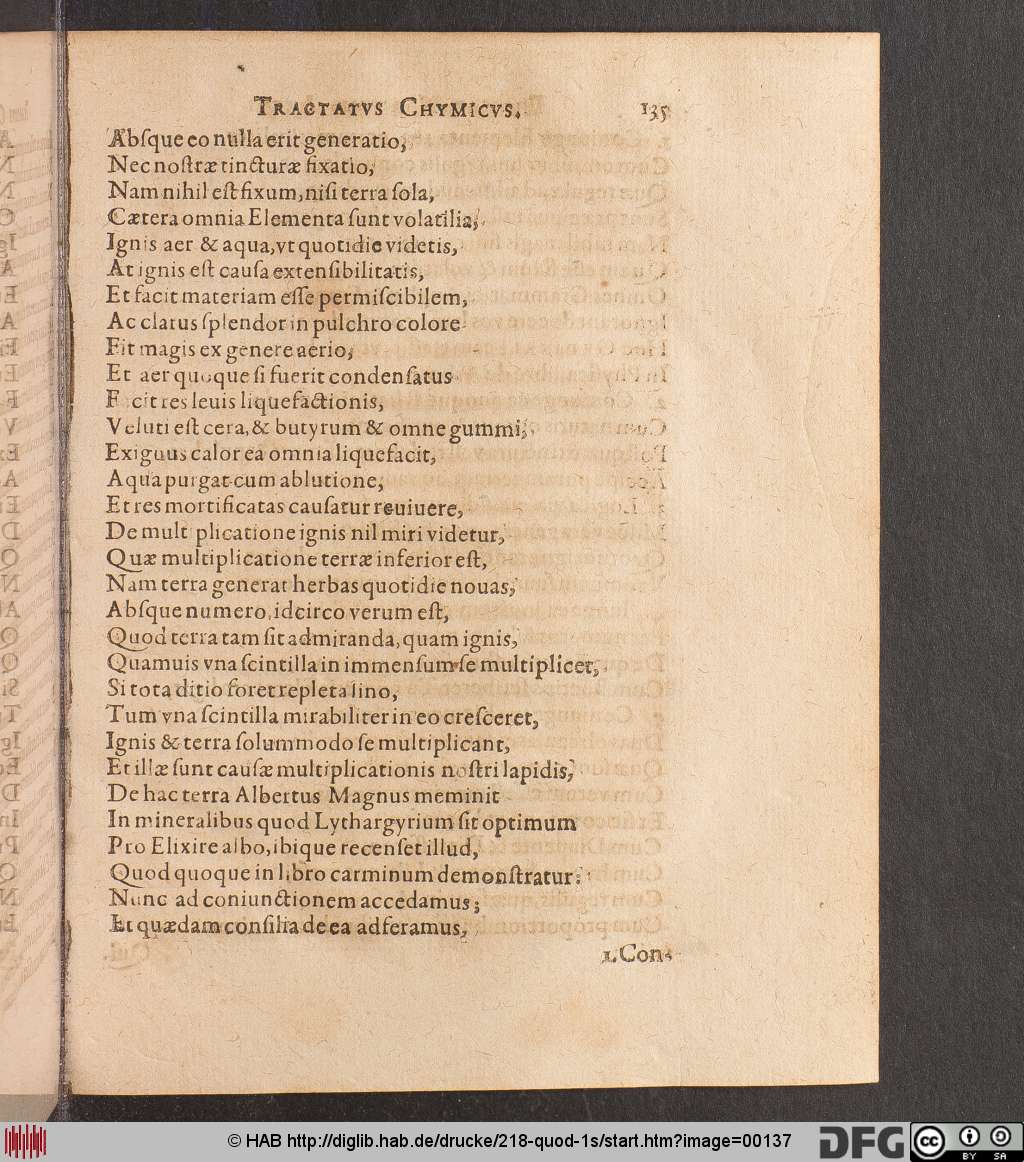 TRACTATVS CHYMICVS. 135
Abſque eo nulla erit generatio,
Nec noſtræ tincturæ fixatio,
Nam nihil eſt fixum, niſi terra ſola,
Cætera omnia Elementa ſunt volatilia,
Ignis aer & aqua, vt quotidie videtis,
At ignis eſt cauſa extenſibilitatis,
Et facit materiam eſſe permiſcibilem,
Ac clarus ſplendor in pulchro colore
Fit magis ex genere aerio,
Et aer quoque ſi fuerit condenſatus
F cit res leuis liquefactionis,
Veluti eſt cera, & butyrum & omne gummi,
Exiguus calor ea omnia liquefacit,
Aqua purgat cum ablutione,
Et res mortificatas cauſatur reuiuere,
De mult plicatione ignis nil miri videtur,
Quæ multiplicatione terræ inferior eſt,
Nam terra generat herbas quotidie nouas,
Abſque numero, idcirco verum eſt,
Quod terra tam ſit admiranda, quam ignis,
Quamuis vna ſcintilla in immenſum ſe multiplicet,
Si tota ditio foret repleta lino,
Tum vna ſcintilla mirabiliter in eo creſceret,
Ignis & terra ſolummodo ſe multiplicant,
Et illæ ſunt cauſæ multiplicationis noſtri lapidis,
De hac terra Albertus Magnus meminit
In mineralibus quod Lythargyrium ſit optimum
Pro Elixire albo, ibique recenſet illud,
Quod quoque in libro carminum demonſtratur:
Nunc ad coniunctionem accedamus;
Et quædam conſilia de ea adferamus,
1. Con-
© HAB http://diglib.hab.de/drucke/218-quod-1s/start.htm?image=00137
DFG
cc BY SA